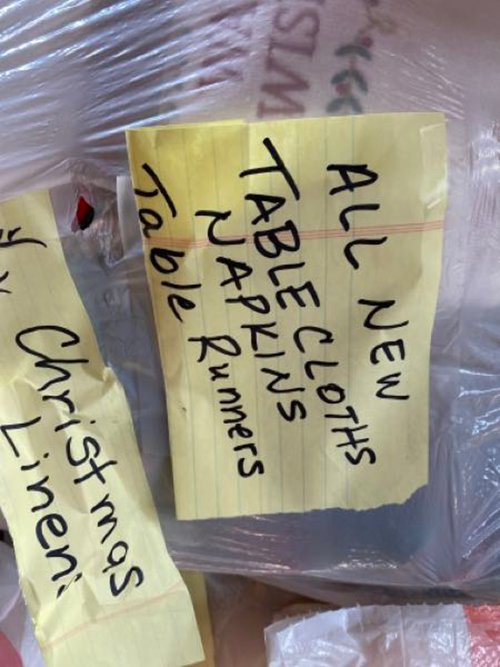 ALL NEW
TABLE CLOTHS
NAPKINS
Table Runners
Christmas
Linen